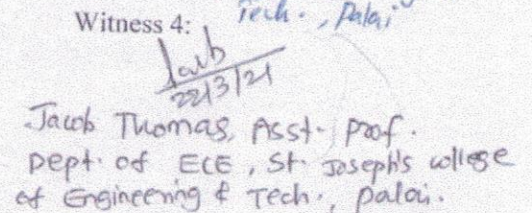 Tech., Palai
Witness 4:
Jacob
22/3/21
Jacob Thomas, Asst. Prof.
Dept. of ECE, St. Joseph's college
of Engineering & Tech., Palai.